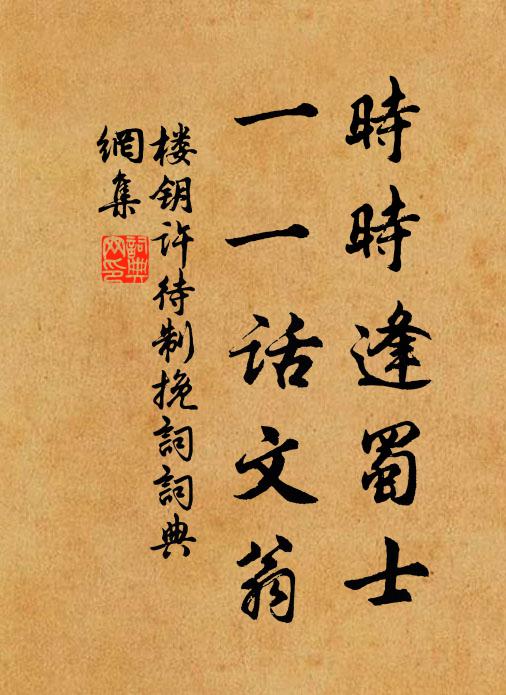 時時逢蜀士
一一话文翁
楼钥许待制挽詞詞典
網集
詞典网印